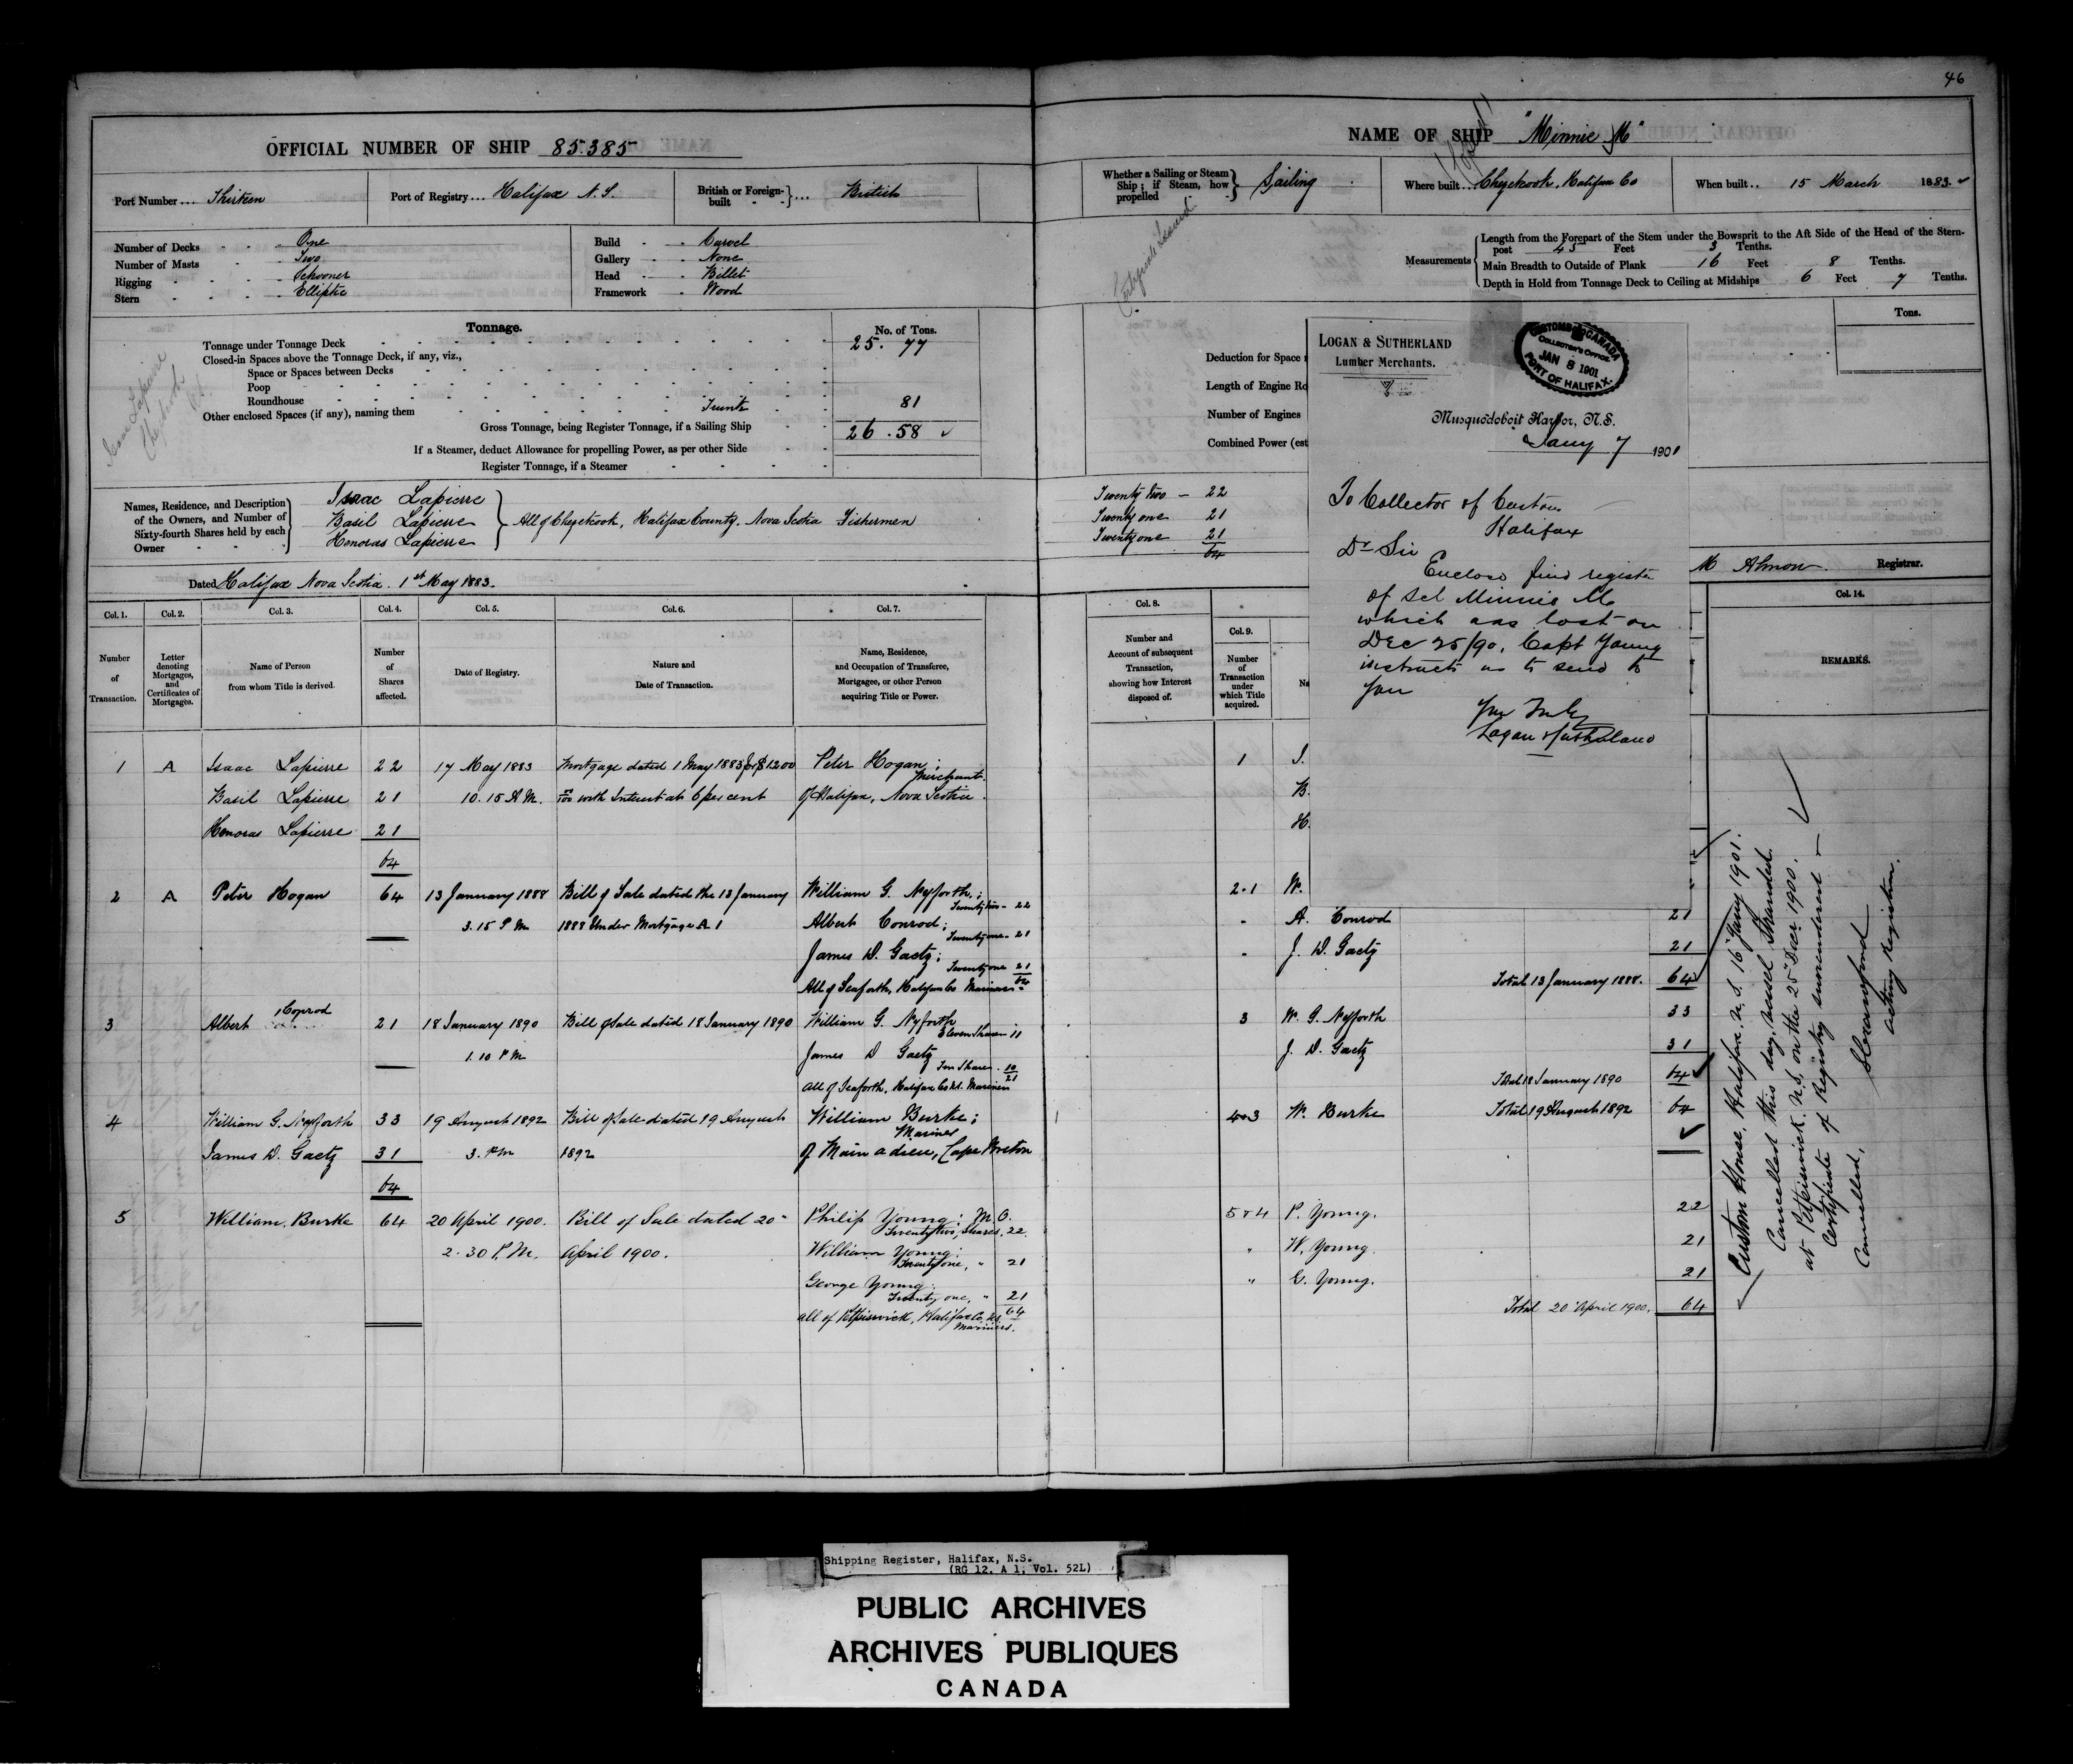 46
OFFICIAL NUMBER OF SHIP 85.385
Port Number ... Thirteen
Port of Registry ... Halifax N.S.
British or Foreign-built ... British
Number of Decks One
Number of Masts Two
Rigging Schooner
Stern Elliptic
Build Carvel
Gallery None
Head Billet
Framework Wood
Tonnage.
No. of Tons.
Tonnage under Tonnage Deck 25. 77
Closed-in Spaces above the Tonnage Deck, if any, viz.,
Space or Spaces between Decks
Poop
Roundhouse
Other enclosed Spaces (if any), naming them Trunk 81
Gross Tonnage, being Register Tonnage, if a Sailing Ship 26.58
If a Steamer, deduct Allowance for propelling Power, as per other Side
Register Tonnage, if a Steamer
Isaac Lapierre
Names, Residence, and Description of the Owners, and Number of Sixty-fourth Shares held by each Owner
Isaac Lapierre
Basil Lapierre
Honoras Lapierre
All of Chezetcook, Halifax County, Nova Scotia Fishermen
Dated Halifax Nova Scotia. 1st May 1883.
Col. 1. Col. 2. Col. 3. Col. 4. Col. 5. Col. 6. Col. 7.
Number of Transaction.
Letter denoting Mortgages, and Certificates of Mortgages.
Name of Person from whom Title is derived.
Number of Shares affected.
Date of Registry.
Nature and Date of Transaction.
Name, Residence, and Occupation of Transferee, Mortgagee, or other Person acquiring Title or Power.
1 A Isaac Lapierre 22 17 May 1883 Mortgage dated 1 May 1883 for $1200 Peter Hogan; Merchant
Basil Lapierre 21 10.15 A.M. with Interest at 6 per cent of Halifax, Nova Scotia.
Honoras Lapierre 21
64
2 A Peter Hogan 64 13 January 1888 Bill of Sale dated the 13 January William G. Nyforth;
Twenty two - 22
3.15 P.M. 1888 Under Mortgage A 1 Albert Conrod;
Twenty one - 21
James D. Gaetz;
Twenty one 21
64
All of Seaforth, Halifax Co Mariners
3 Albert Conrod 21 18 January 1890 Bill of Sale dated 18 January 1890 William G. Nyforth
Eleven Shares 11
1.10 P.M. James D Gaetz
Ten Shares 10
21
all of Seaforth, Halifax Co N.S. Mariners
4 William G. Nyforth 33 19 August 1892 Bill of Sale dated 19 August William Burke;
Mariner
James D. Gaetz 31 3. P.M 1892 of Main a dieu, Cape Breton
64
5 William Burke 64 20 April 1900. Bill of Sale dated 20 Philip Young: M.O.
Twenty two, Shares, 22
2.30 P.M. April 1900. William Young:
Twenty one, " 21
George Young:
Twenty one, " 21
64
all of Petpiswick, Halifax Co, N.S.
Mariners.
NAME OF SHIP "Minnie M"
Whether a Sailing or Steam Ship; if Steam, how propelled Sailing
Where built ... Chezetcook, Halifax Co
When built .. 15 March 1883.
Certificate Issued
Measurements
Length from the Forepart of the Stem under the Bowsprit to the Aft Side of the Head of the Stern-
post 45 Feet 3 Tenths.
Main Breadth to Outside of Plank 16 Feet 8 Tenths.
Depth in Hold from Tonnage Deck to Ceiling at Midships 6 Feet 7 Tenths.
Tons.
Deduction for Space
Length of Engine Ro
Number of Engines
Combined Power (est
Twenty two - 22
Twenty one 21
Twenty one 21
64
LOGAN & SUTHERLAND
Lumber Merchants.
CUSTOMS CANADA
COLLECTOR'S OFFICE
JAN 8 1901
PORT OF HALIFAX.
Musquodoboit Harbor, N.S.
Jany 7 1901
To Collector of Customs
Halifax
Dr Sir
Enclose find register
of Sch Minnie M.
which was lost on
Dec 25/90. Capt Young
instructs us to send to
you
Yours Truly
Logan & Sutherland
M Almon. Registrar.
Col. 8. Col. 9. Col. 14.
Number and Account of subsequent Transaction, showing how Interest disposed of.
Number of Transaction under which Title acquired.
Na
REMARKS.
1 I.
B.
H.
2.1 W.
" A. Conrod 21
" J. D. Gaetz 21
Total 13 January 1888. 64
3 W. G. Nyforth 33
J. D. Gaetz 31
Total 18 January 1890 64
4&3 W. Burke Total 19 August 1892 64
5&4 P. Young. 22
" W. Young. 21
" G. Young. 21
Total 20 April 1900. 64
Custom House, Halifax, N.S. 16 Jany 1901.
Cancelled this day, vessel Stranded
at Petpiswick. N.S. on the 25 Decr 1900.
Certificate of Registry surrendered
Cancelled,
acting Registrar.
Shipping Register, Halifax, N.S.
(RG 12. A 1, Vol. 52L)
PUBLIC ARCHIVES
ARCHIVES PUBLIQUES
CANADA